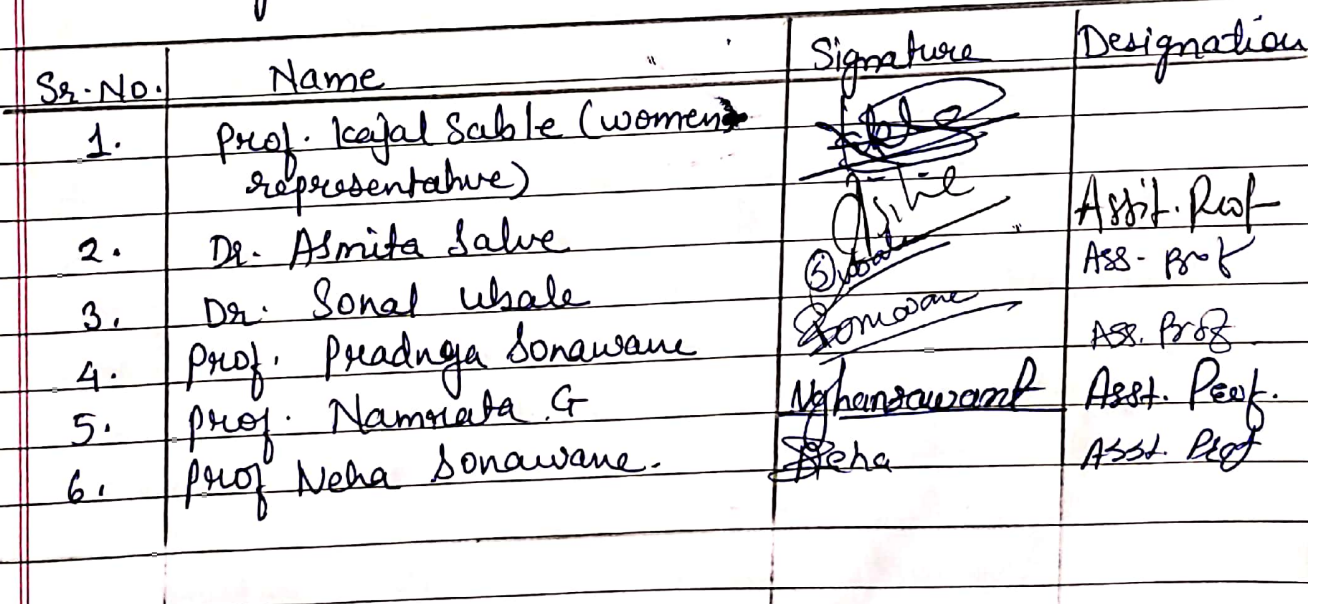 Sr. No. Name Signature Designation
1. Prof. Kajal Sable (women
representative)
2. Dr. Asmita Salve Assit. Prof
3. Dr. Sonal Ubale Ass. Prof
4. Prof. Pradnya Sonawane Sonawane Ass. Prof
5. Prof. Namrata .G Nghansawant Asst. Prof.
6. Prof Neha Sonawane. Neha Asst. Prof